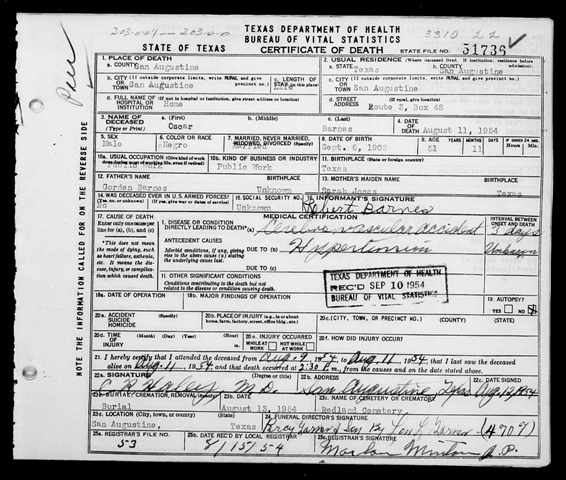 203-0-04 — 203-0-0
TEXAS DEPARTMENT OF HEALTH
BUREAU OF VITAL STATISTICS
3310 22
STATE OF TEXAS
CERTIFICATE OF DEATH
STATE FILE NO. 51736
1. PLACE OF DEATH
a. COUNTY San Augustine
2. USUAL RESIDENCE
a. STATE Texas
b. COUNTY San Augustine
b. CITY (If outside corporate limits, write RURAL and give precinct no.) OR TOWN San Augustine
c. LENGTH OF STAY Life
c. CITY (If outside corporate limits, write RURAL and give precinct no.) OR TOWN San Augustine
d. FULL NAME OF (If not in hospital or institution, give street address or location) HOSPITAL OR INSTITUTION Home
d. STREET ADDRESS Route 3, Box 48
3. NAME OF DECEASED (Type or Print)
a. (First) Oscar
b. (Middle)
c. (Last) Barnes
4. DATE OF DEATH August 11, 1954
5. SEX Male
6. COLOR OR RACE Negro
7. MARRIED, NEVER MARRIED, WIDOWED, DIVORCED Married
8. DATE OF BIRTH Sept. 6, 1902
9. AGE 51 11
10a. USUAL OCCUPATION Public Work
10b. KIND OF BUSINESS OR INDUSTRY Public Work
11. BIRTHPLACE (State or foreign country) Texas
12. FATHER'S NAME Gordon Barnes
BIRTHPLACE Unknown
13. MOTHER'S MAIDEN NAME Sarah Jones
BIRTHPLACE Texas
14. WAS DECEASED EVER IN U.S. ARMED FORCES? No
15. SOCIAL SECURITY NO. Unknown
16. INFORMANT'S SIGNATURE Barnes
17. CAUSE OF DEATH
Enter only one cause per line for (a), (b), and (c)
MEDICAL CERTIFICATION
INTERVAL BETWEEN ONSET AND DEATH
I. DISEASE OR CONDITION DIRECTLY LEADING TO DEATH (a) Cerebro vascular accident 3 days
ANTECEDENT CAUSES
DUE TO (b) Hypertension Unknown
Morbid conditions, if any, giving rise to the above cause (a) stating the underlying cause last.
DUE TO (c)
This does not mean the mode of dying, such as heart failure, asthenia, etc. It means the disease, injury, or complication which caused death.
II. OTHER SIGNIFICANT CONDITIONS
Conditions contributing to the death but not related to the disease or condition causing death.
TEXAS DEPARTMENT OF HEALTH
REC'D SEP 10 1954
BUREAU OF VITAL STATISTICS
18a. DATE OF OPERATION
18b. MAJOR FINDINGS OF OPERATION
19. AUTOPSY?
YES NO
20a. ACCIDENT SUICIDE HOMICIDE
20b. PLACE OF INJURY
20c. (CITY, TOWN, OR PRECINCT NO.) (COUNTY) (STATE)
20d. TIME OF INJURY (Month) (Day) (Year) (Hour)
20e. INJURY OCCURRED WHILE AT WORK NOT WHILE AT WORK
20f. HOW DID INJURY OCCUR?
21. I hereby certify that I attended the deceased from Aug. 9, 1954, to Aug. 11, 1954, that I last saw the deceased
alive on Aug. 11, 1954, and that death occurred at 2:30 P.m., from the causes and on the date stated above.
22a. SIGNATURE M.D.
(Degree or title)
22b. ADDRESS San Augustine, Texas
22c. Aug. 12, 1954
23a. BURIAL, CREMATION, REMOVAL Burial
23b. DATE August 13, 1954
23c. NAME OF CEMETERY OR CREMATORY Redland Cemetery
23d. LOCATION (City, town, or county) (State)
San Augustine, Texas
24. FUNERAL DIRECTOR'S SIGNATURE
(4707)
25a. REGISTRAR'S FILE NO. 53
25b. DATE REC'D BY LOCAL REGISTRAR 8/15/54
25c. REGISTRAR'S SIGNATURE
J.P.
NOTE THE INFORMATION CALLED FOR ON THE REVERSE SIDE